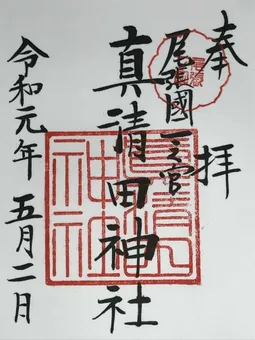 奉拝
尾張國一之宮
真清田神社
令和元年五月二日